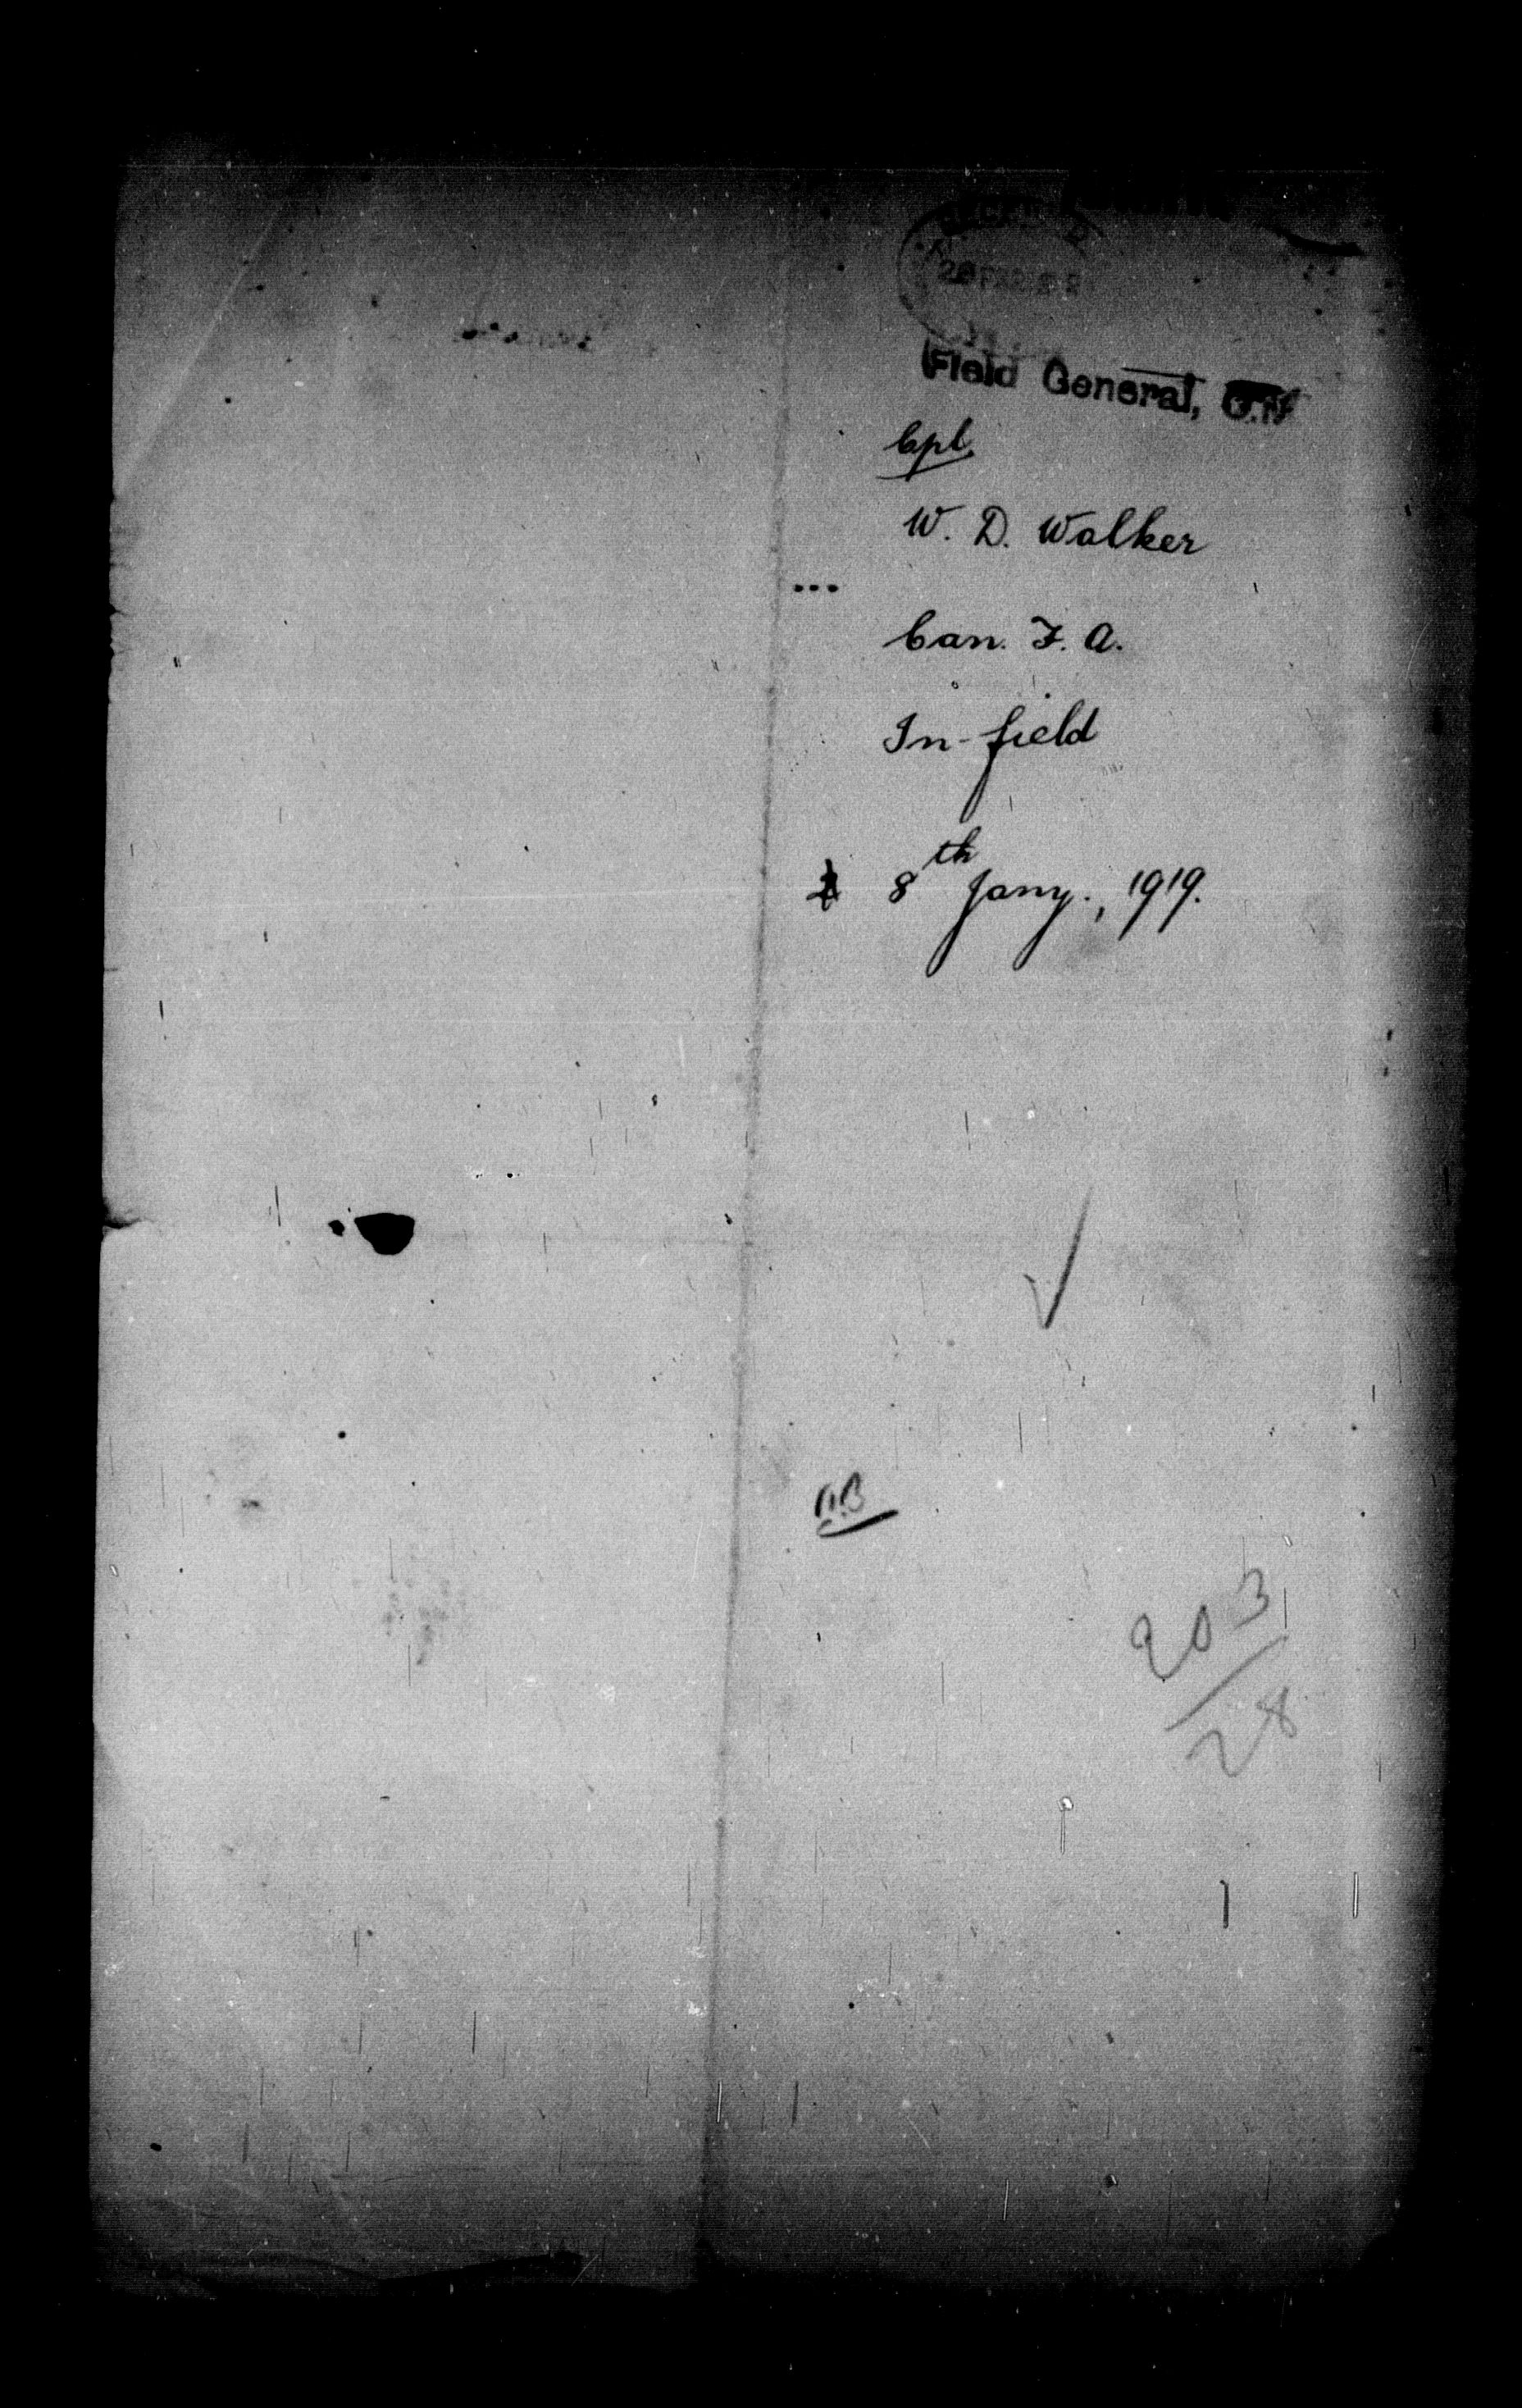 Field General,
Cpl.
W. D. Walker
Can. F. A.
In-field
8th Jany., 1919.
203
28